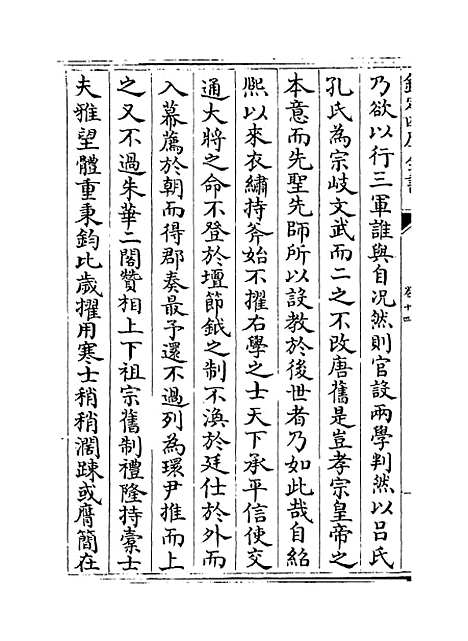 欽定四庫全書
卷十四
乃欲以行三軍誰與自况然則官設兩學判然以吕氏
孔氏為宗岐文武而二之不改唐舊是豈孝宗皇帝之
本意而先聖先師所以設教於後世者乃如此哉自紹
熈以來衣繡持斧始不擢右學之士天下承平信使交
通大將之命不登於壇節鉞之制不渙於廷仕於外而
入幕薦於朝而得郡奏最予還不過列為環尹推而上
之又不過朱華二閤贊相上下祖宗舊制禮隆持槖士
夫雅望體重秉鈞比歲擢用寒士稍稍濶踈或膺簡在